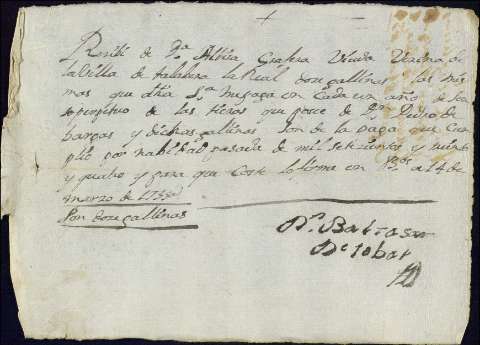 Recibi de Dª Maria Viuda Vecina de
la Villa de talabera la Real dos gallinas las mis
mas que dha Sª me paga en Cada un año de
perpetuo de las tierras que posee de Dn Pedro de
bargas y dichas gallinas son de la paga que Cum
plio por nabidad pasada de mil setezientos y
y quatro y para que Coste lo firme en a 14 de
marzo de
Son dos gallinas
Dn Baltasar
de tobar